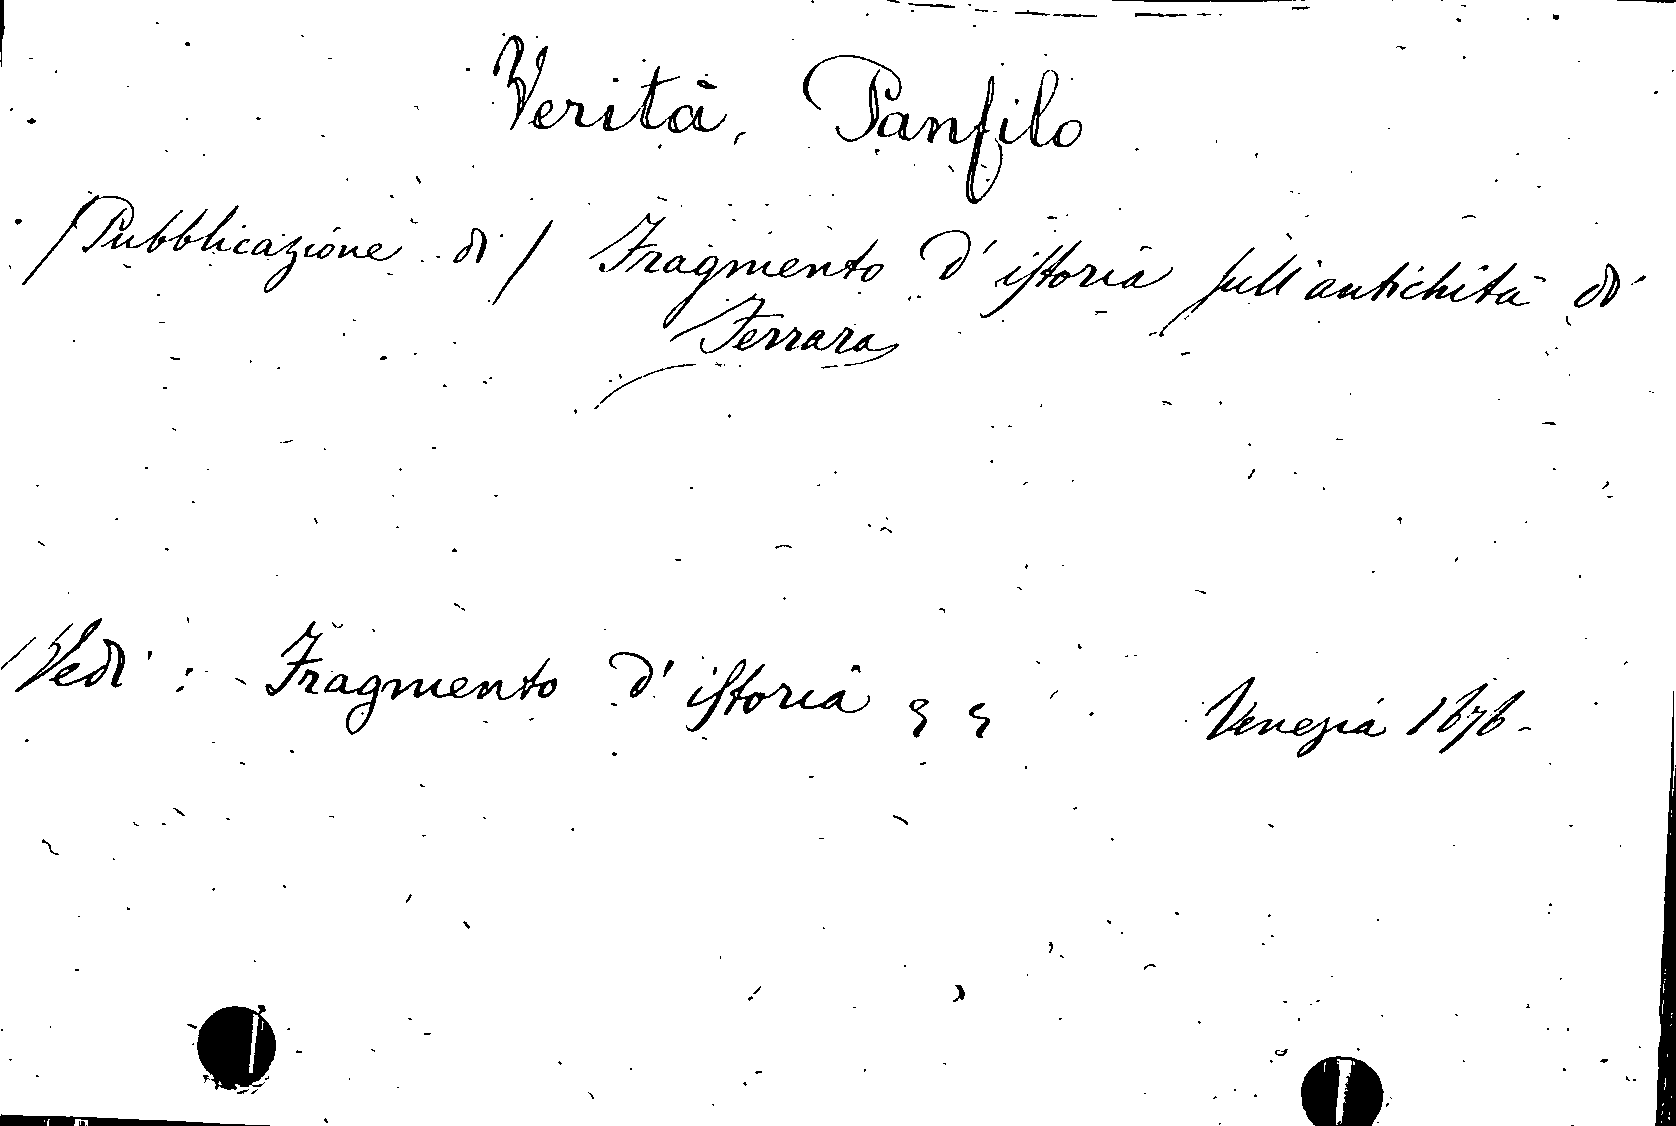 Verità, Panfilo
/Pubblicazione di/ Fragmento d' istoria sull'antichità di
Ferrara
Vedi: Fragmento d' istoria Venezia 1676-